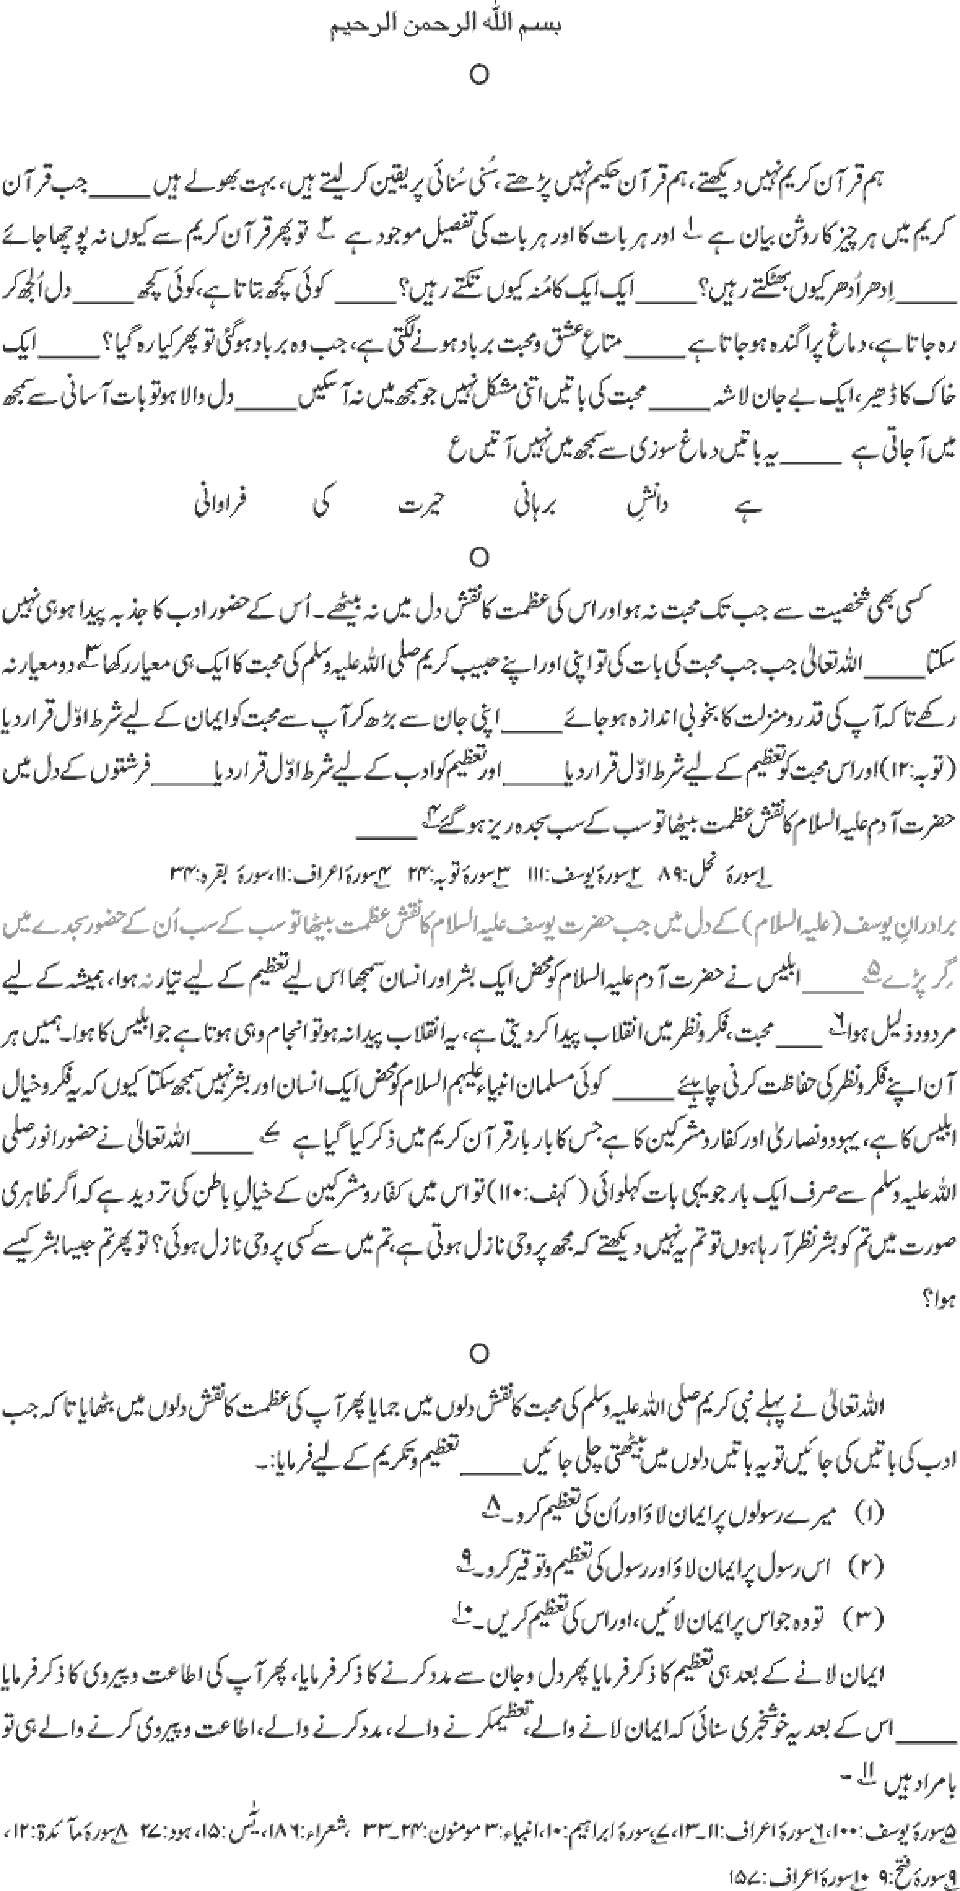 بسم اللہ الرحمن الرحیم
ہم قرآن کریم نہیں دیکھتے، ہم قرآن حکیم نہیں پڑھتے، سُنی سُنائی پر یقین کر لیتے ہیں، بہت بھولے ہیں ____ جب قرآن
کریم میں ہر چیز کا روشن بیان ہے ۱؎ اور ہر بات کا اور ہر بات کی تفصیل موجود ہے ۲؎ تو پھر قرآن کریم سے کیوں نہ پوچھا جائے
____ اِدھر اُدھر کیوں بھٹکتے رہیں؟ ____ ایک ایک کا مُنہ کیوں تکتے رہیں؟ ____ کوئی کچھ بتاتا ہے، کوئی کچھ ____ دل اُلجھ کر
رہ جاتا ہے، دماغ پراگندہ ہو جاتا ہے ____ متاعِ عشق و محبت برباد ہونے لگتی ہے، جب وہ برباد ہوگئی تو پھر کیا رہ گیا؟ ____ ایک
خاک کا ڈھیر، ایک بے جان لاشہ ____ محبت کی باتیں اتنی مشکل نہیں جو سمجھ میں نہ آسکیں ____ دل والا ہو تو بات آسانی سے سمجھ
میں آجاتی ہے ____ یہ باتیں دماغ سوزی سے سمجھ میں نہیں آتیں ع
ہے دانشِ برہانی حیرت کی فراوانی
کسی بھی شخصیت سے جب تک محبت نہ ہو اور اس کی عظمت کا نقش دل میں نہ بیٹھے۔ اُس کے حضور ادب کا جذبہ پیدا ہو ہی نہیں
سکتا ____ اللہ تعالیٰ جب جب محبت کی بات کی تو اپنی اور اپنے حبیب کریم صلی اللہ علیہ وسلم کی محبت کا ایک ہی معیار رکھا ۳؎ دو معیار نہ
رکھے تاکہ آپ کی قدر و منزلت کا بخوبی اندازہ ہو جائے ____ اپنی جان سے بڑھ کر آپ سے محبت کو ایمان کے لیے شرط اوّل قرار دیا
(توبہ:۱۲) اور اس محبت کو تعظیم کے لیے شرط اوّل قرار دیا ____ اور تعظیم کو ادب کے لیے شرط اوّل قرار دیا ____ فرشتوں کے دل میں
حضرت آدم علیہ السلام کا نقش عظمت بیٹھا تو سب کے سب سجدہ ریز ہوگئے ۴؎ ____
۱؎ سورۂ نحل:۸۹ ۲؎ سورۂ یوسف:۱۱۱ ۳؎ سورۂ توبہ:۲۴ ۴؎ سورۂ اعراف:۱۱، سورۂ بقرہ:۳۴
برادرانِ یوسف (علیہ السلام) کے دل میں جب حضرت یوسف علیہ السلام کا نقش عظمت بیٹھا تو سب کے سب اُن کے حضور سجدے میں
گر پڑے ۵؎ ____ ابلیس نے حضرت آدم علیہ السلام کو محض ایک بشر اور انسان سمجھا اس لیے تعظیم کے لیے تیار نہ ہوا، ہمیشہ کے لیے
مردود ذلیل ہوا ۶؎ ____ محبت، فکر و نظر میں انقلاب پیدا کر دیتی ہے، یہ انقلاب پیدا نہ ہو تو انجام وہی ہوتا ہے جو ابلیس کا ہوا۔ ہمیں ہر
آن اپنے فکر و نظر کی حفاظت کرنی چاہیئے ____ کوئی مسلمان انبیاء علیہم السلام کو محض ایک انسان اور بشر نہیں سمجھ سکتا کیوں کہ یہ فکر و خیال
ابلیس کا ہے، یہود و نصاریٰ اور کفار د مشرکین کا ہے جس کا بار بار قرآن کریم میں ذکر کیا گیا ہے ۷؎ ____ اللہ تعالیٰ نے حضور انور صلی
اللہ علیہ وسلم سے صرف ایک بار جو یہی بات کہلوائی (کہف:۱۱۰) تو اس میں کفار و مشرکین کے خیالِ باطن کی تردید ہے کہ اگر ظاہری
صورت میں تم کو بشر نظر آرہا ہوں تو تم یہ نہیں دیکھتے کہ مجھ پر وحی نازل ہوتی ہے، تم میں سے کسی پر وحی نازل ہوئی؟ تو پھر تم جیسا بشر کیسے
ہوا؟
اللہ تعالیٰ نے پہلے نبی کریم صلی اللہ علیہ وسلم کی محبت کا نقش دلوں میں جمایا پھر آپ کی عظمت کا نقش دلوں میں بٹھایا تاکہ جب
ادب کی باتیں کی جائیں تو یہ باتیں دلوں میں بیٹھتی چلی جائیں ____ تعظیم و تکریم کے لیے فرمایا:۔
(۱) میرے رسولوں پر ایمان لاؤ اور اُن کی تعظیم کرو۔ ۸؎
(۲) اس رسول پر ایمان لاؤ اور رسول کی تعظیم و توقیر کرو۔ ۹؎
(۳) تو وہ جو اس پر ایمان لائیں، اور اس کی تعظیم کریں۔ ۱۰؎
ایمان لانے کے بعد ہی تعظیم کا ذکر فرمایا پھر دل و جان سے مدد کرنے کا ذکر فرمایا، پھر آپ کی اطاعت و پیروی کا ذکر فرمایا
____ اس کے بعد یہ خوشخبری سنائی کہ ایمان لانے والے، تعظیمکرنے والے، مدد کرنے والے، اطاعت و پیروی کرنے والے ہی تو
بامراد ہیں ۱۱؎ -
۵؎ سورۂ یوسف:۱۰۰، ۶؎ سورۂ اعراف:۱۱۔۱۳، ۷؎ سورۂ ابراہیم:۱۰، انبیاء:۳ مومنون:۲۴۔۳۳ ، شعراء:۱۸۶، یٰسٓ:۱۵، ہود:۲۷ ۸؎ سورۂ مآئدۃ:۱۲،
۹؎ سورۂ فتح:۹ ۱۰؎ سورۂ اعراف:۱۵۷